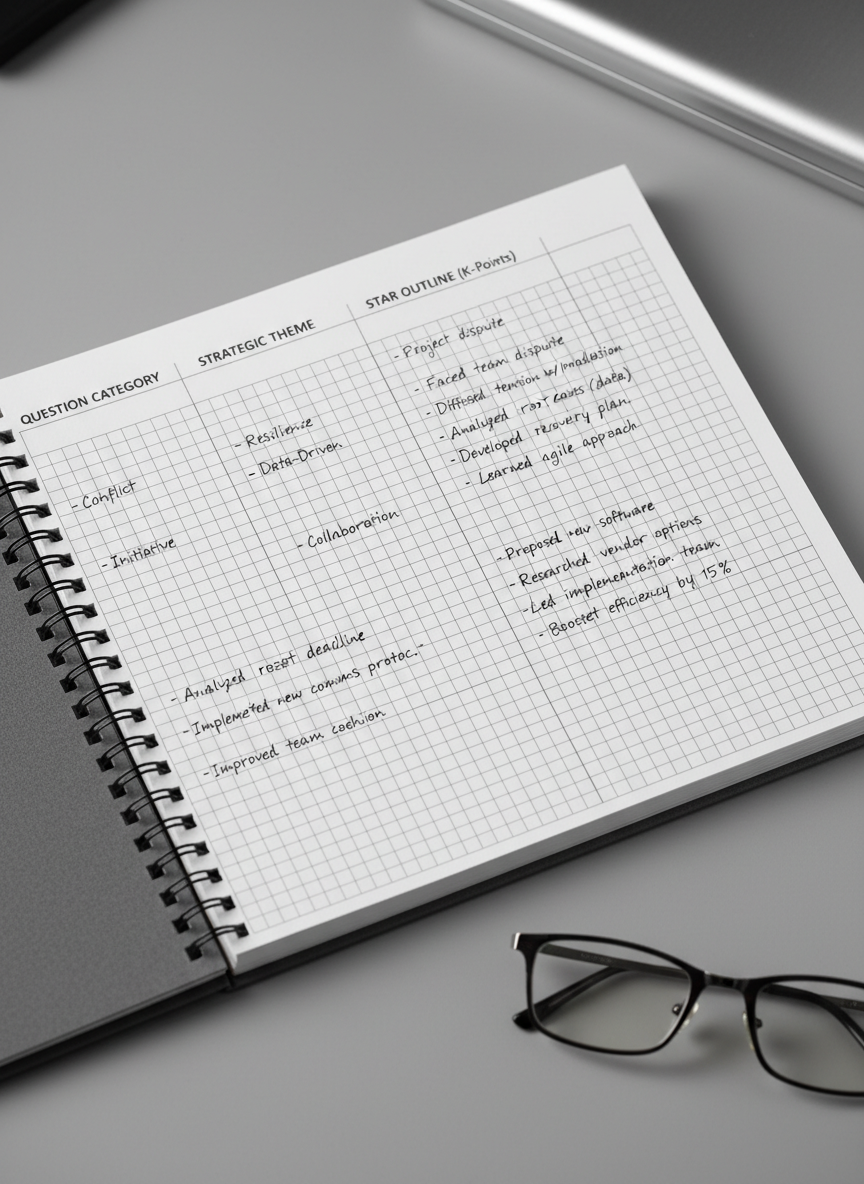 QUESTION CATEGORY
STRATEGIC THEME
STAR OUTLINE (K-Points)
- Conflict
- Initiative
- Resilience
- Data-Driven
- Collaboration
- Project dispute
- Faced team dispute
- tension w/
- Analyzed (data)
- Developed recovery plan.
- Learned agile approach
- Proposed new software
- Researched vendor options
- Led implementation team
- efficiency by 15%
- Analyzed deadline
- new comms protoc.-
- Improved team